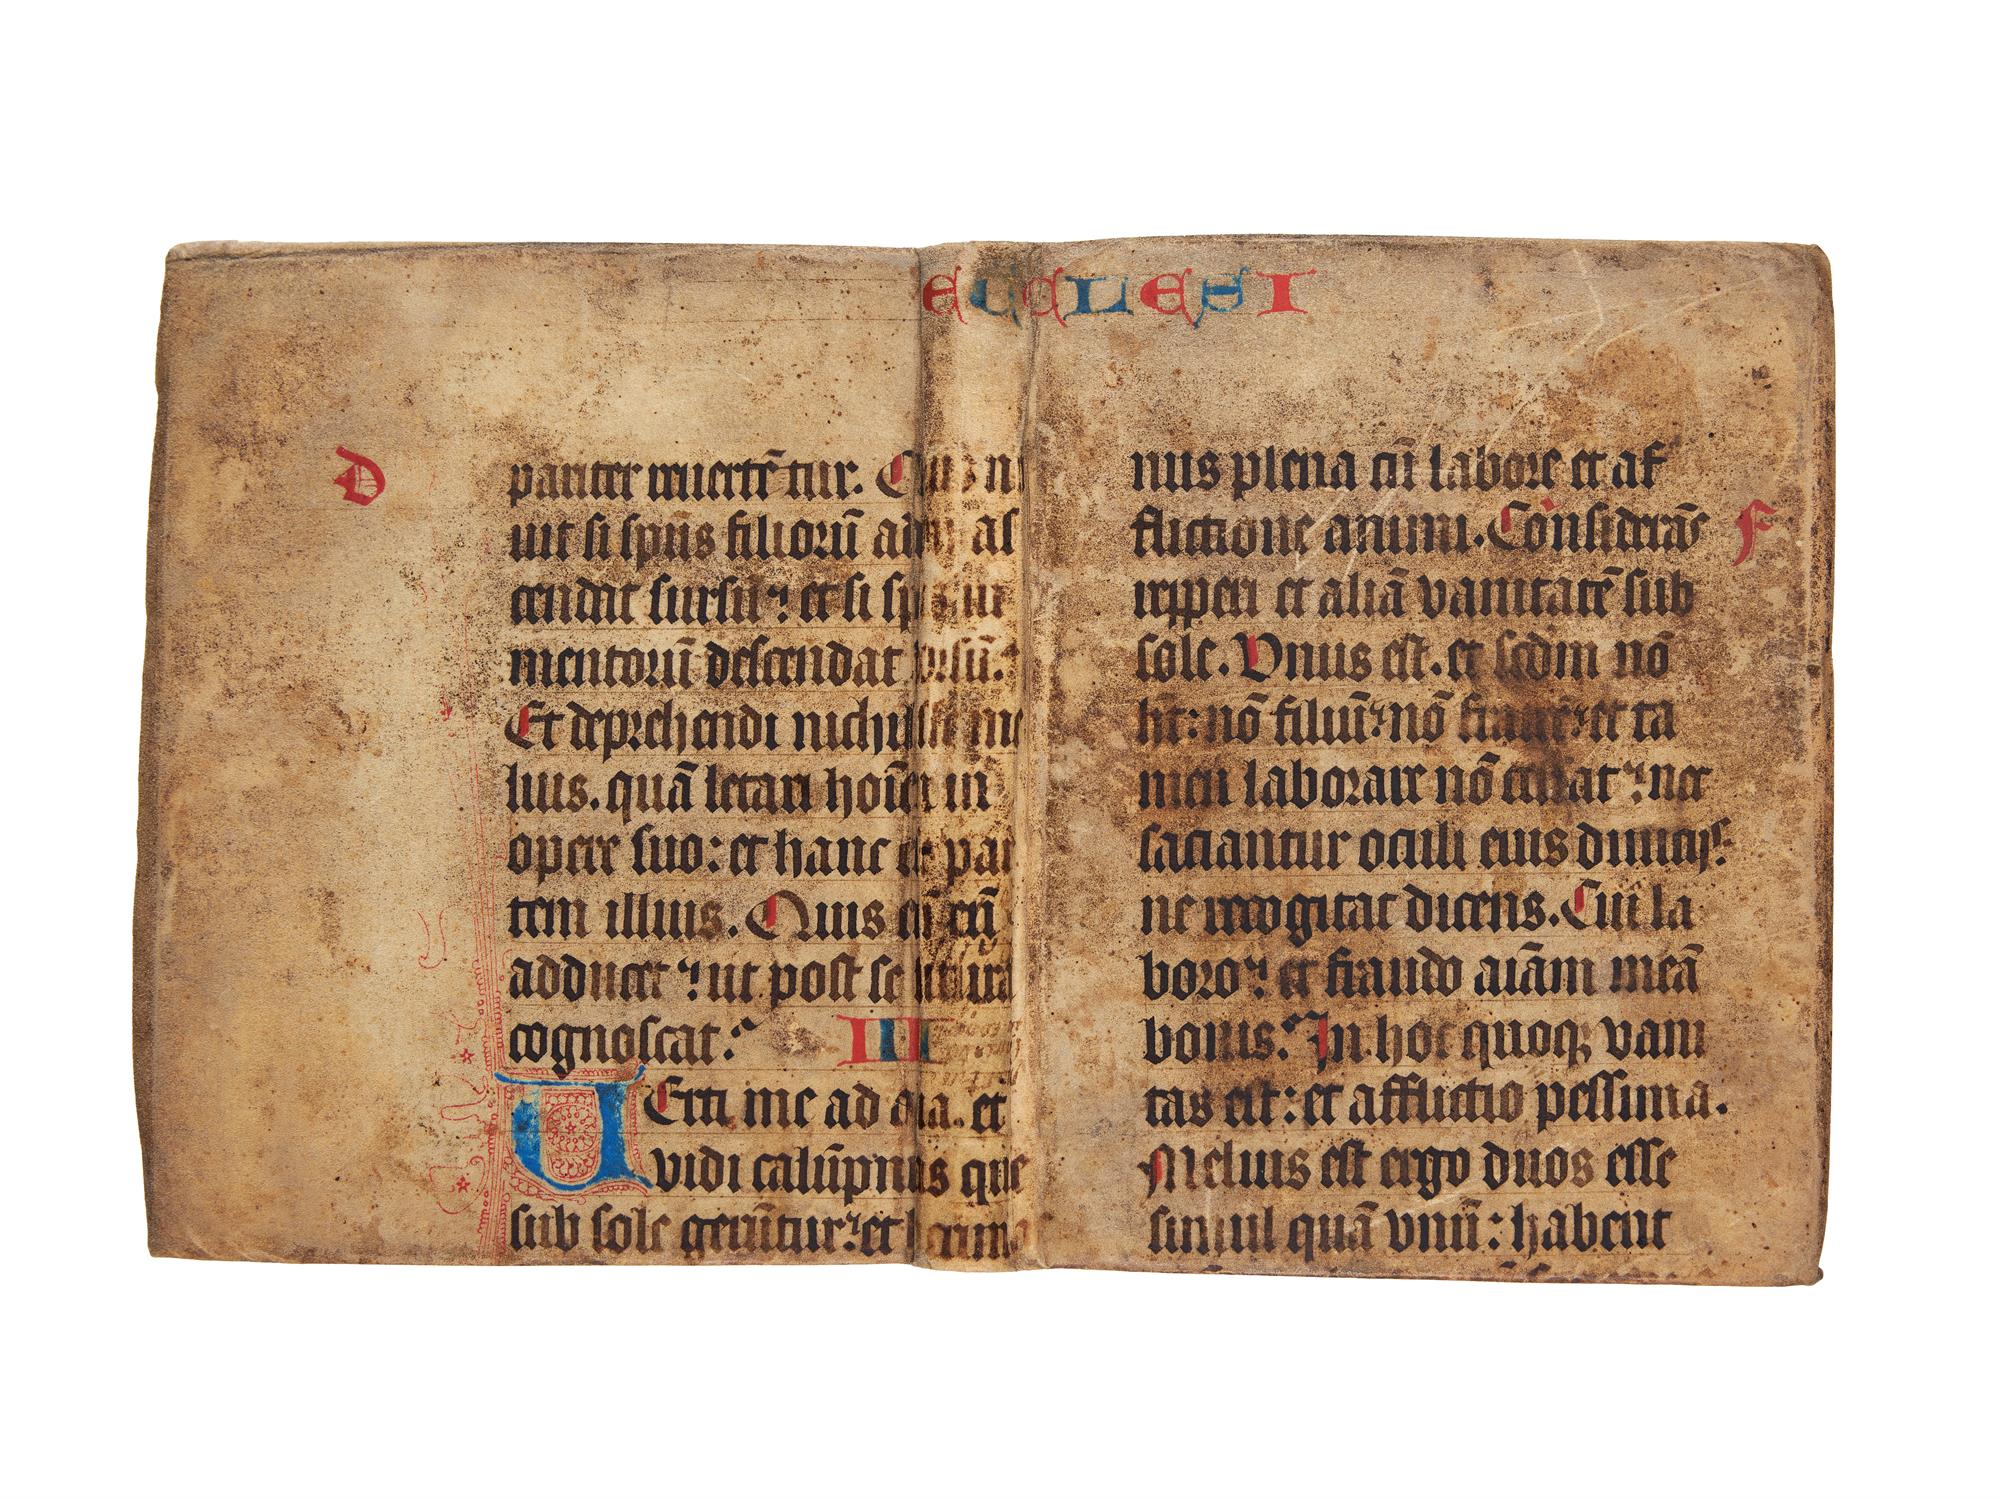 ECCLESI
D
pariter reuertētur. Quis n
uit si spūs filiorū adā as
cendat sursū: et si spūs iu
mentorū descendat orsū.
Et deprehendi nichil esse me
lius. quā letari hoīem in
opere suo: et hanc eē par
tem illius. Quis eī eū
adducet: ut post se futura
cognoscat: IIII
UErti me ad aīa. et
vidi calūpnias que
sub sole gerūtur: et lacrimas
nus plena cū labore et af
flictione animi. Considerās
F
repperi et aliā vanitatē sub
sole. Vnus est. et sedm nō
ht: nō filiū: nō fratrē: et ta
men laborare nō cessat: nec
saciantur oculi eius diuicijs:
ne recogitat dicens. Cui la
boro: et fraudo aīam meā
bonis: In hoc quoq; vani
tas est: et afflictio pessima.
Melius est ergo duos esse
simul quā vnū: habent